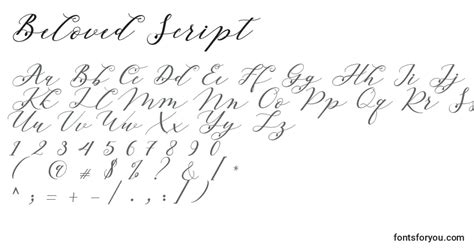 Beloved Script
Aa Bb Cc Dd Ee Ff Gg Hh Ii Jj
Kk Ll Mm Nn Oo Pp Qq Rr Ss
Uu Vv Ww Xx Yy Zz
1 2 3 4 5 6 7 8 9 0
( @ # $ % & ! ? ) *
^ ; = + - / . , : [ ]
fontsforyou.com